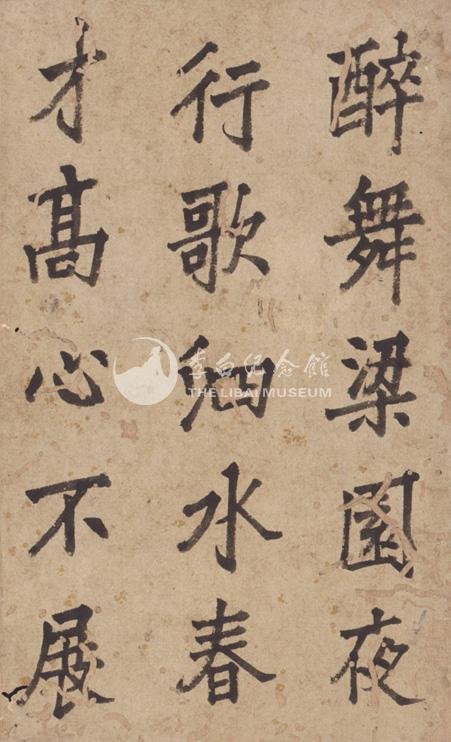 醉舞梁園夜
行歌泗水春
才髙心不展
李白纪念馆
THE LIBAI MUSEUM